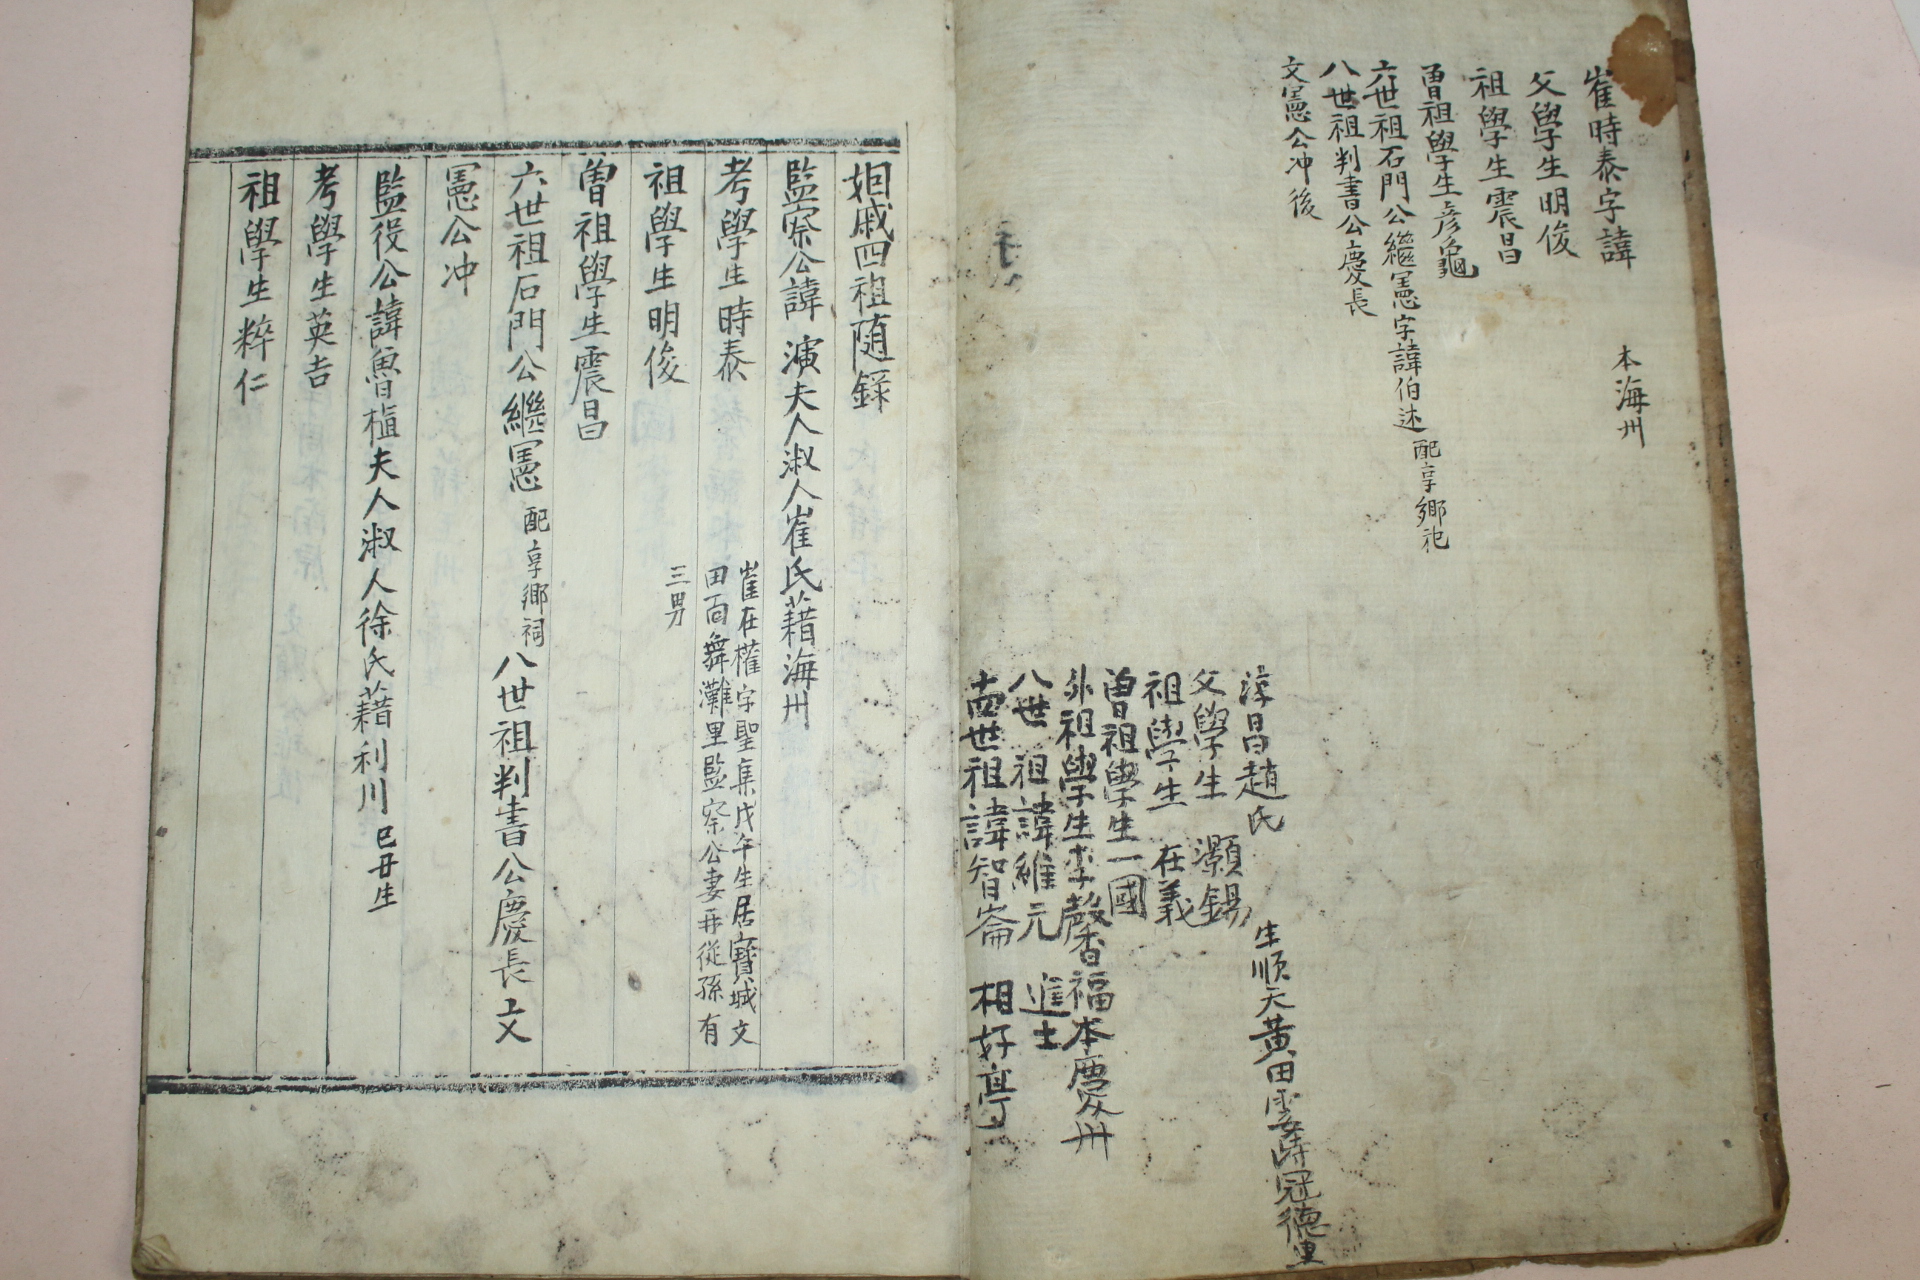 崔時泰字諱
本海州
父學生明俊
祖學生震昌
曾祖學生彦龜
六世祖石門公繼憲字諱伯述 配享鄉祀
八世祖判書公慶長
文憲公冲後
淳昌趙氏
生順天黃田雲峙冠德里
父學生 灝錫
祖學生 在義
曾祖學生一國
外祖學生李馨福本慶州
八世祖諱維元 進士
十四世祖諱智崙 相好亭
姻戚四祖随錄
監察公諱演夫人淑人崔氏藉海州
考學生時泰
崔在權字聖集戊午生居寶城文
田面舞灘里監察公妻再從孫有
三男
祖學生明俊
曾祖學生震昌
六世祖石門公繼憲 配享鄉祠 八世祖判書公慶長文
憲公冲
監役公諱魯植夫人淑人徐氏藉利川 己丑生
考學生英吉
祖學生粹仁